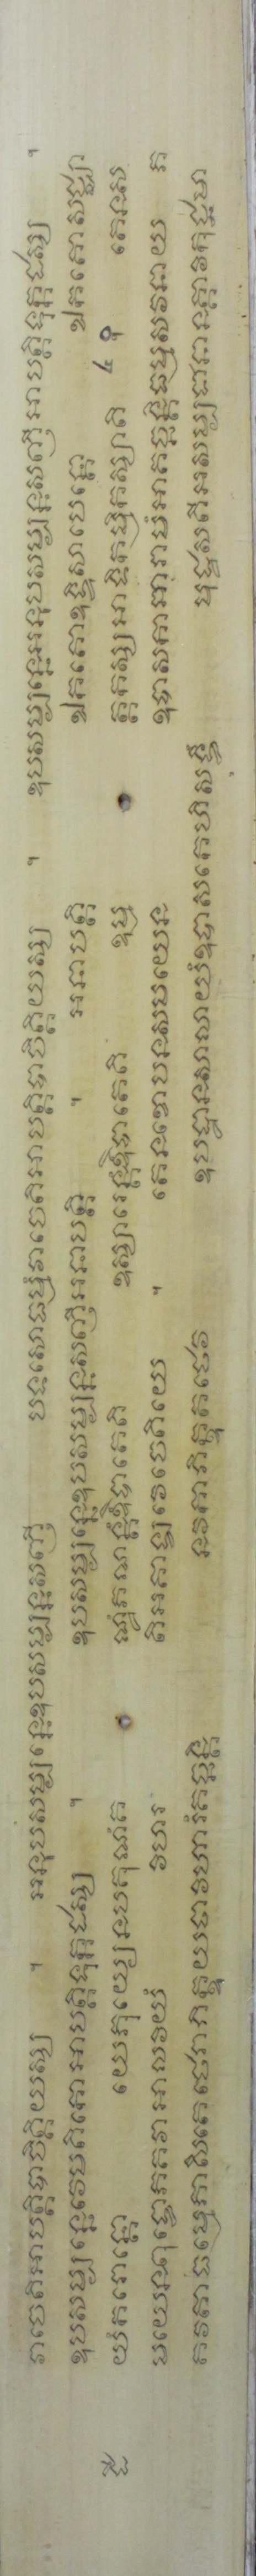 វាចេតិអាបត្តិបាចិត្តិយស្ស ។ អនុបសម្បន្នេឧបសម្បន្នសញ្ញី បទសោធម្មំវាចេតិអាបត្តិបាចិត្តិយស្ស ។ ឧបសម្បន្នេអនុបសម្បន្នសញ្ញីអាបត្តិទុក្កដស្ស ។
ឧបសម្បន្នេវេមតិកោអាបត្តិទុក្កដស្ស ។ ឧបសម្បន្នេឧបសម្បន្នសញ្ញីអនាបត្តិ ។ អនាបត្តិ ឯកតោឧទ្ទិសាបេន្តោ ឯកតោសជ្ឈា
យំករោន្តោ យេភុយ្យេនបគុណំគ ណ្ឋំភណន្តំឱបាតេតិ ឧស្សារេន្តំឱបាតេតិ ឧម្ម ត្តកស្សអាទិកម្មិកស្សាតិ ៤ ។ តេនស
មយេនពុទ្ធោភគវាអាឡវិយំ វិហរ តិអគ្គាឡវេចេតិយេ ។ តេនខោបនសមយេន ឧបាសកាអារាមំអាគច្ឆន្តិធម្មសវនាយ ភ
គវតាធម្មេភាសិតេថេរាភិក្ខូយថាវិហារំគច្ឆន្តិ នវកាភិក្ខូតថេវ ឧបដ្ឋានសាលាយំឧបាសកេហិសទ្ធឹ មុដ្ឋស្សតីអសម្បជានានគ្គាវិកុជ្ជមា